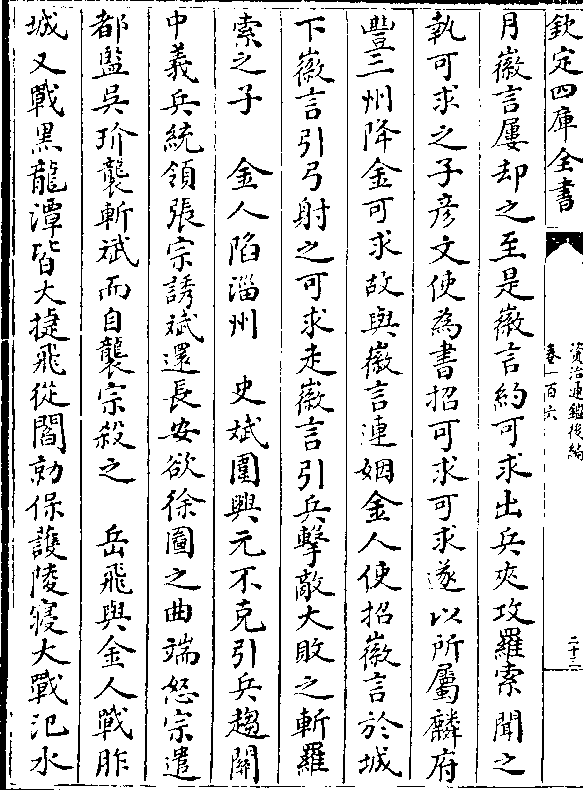 欽定四庫全書
資治通鑑後編
卷一百六
二十三
月徽言屢却之至是徽言約可求出兵夾攻羅索聞之
執可求之子彦文使為書招可求可求遂以所屬麟府
豐三州降金可求故與徽言連姻金人使招徽言於城
下徽言引弓射之可求走徽言引兵擊敵大敗之斬羅
索之子　金人陷淄州　史斌圍興元不克引兵趨關
中義兵統領張宗誘斌還長安欲徐圖之曲端怒宗遣
都監吳玠襲斬斌而自襲宗殺之　岳飛與金人戰胙
城又戰黒龍潭皆大捷飛從閭勍保護陵寢大戰汜水